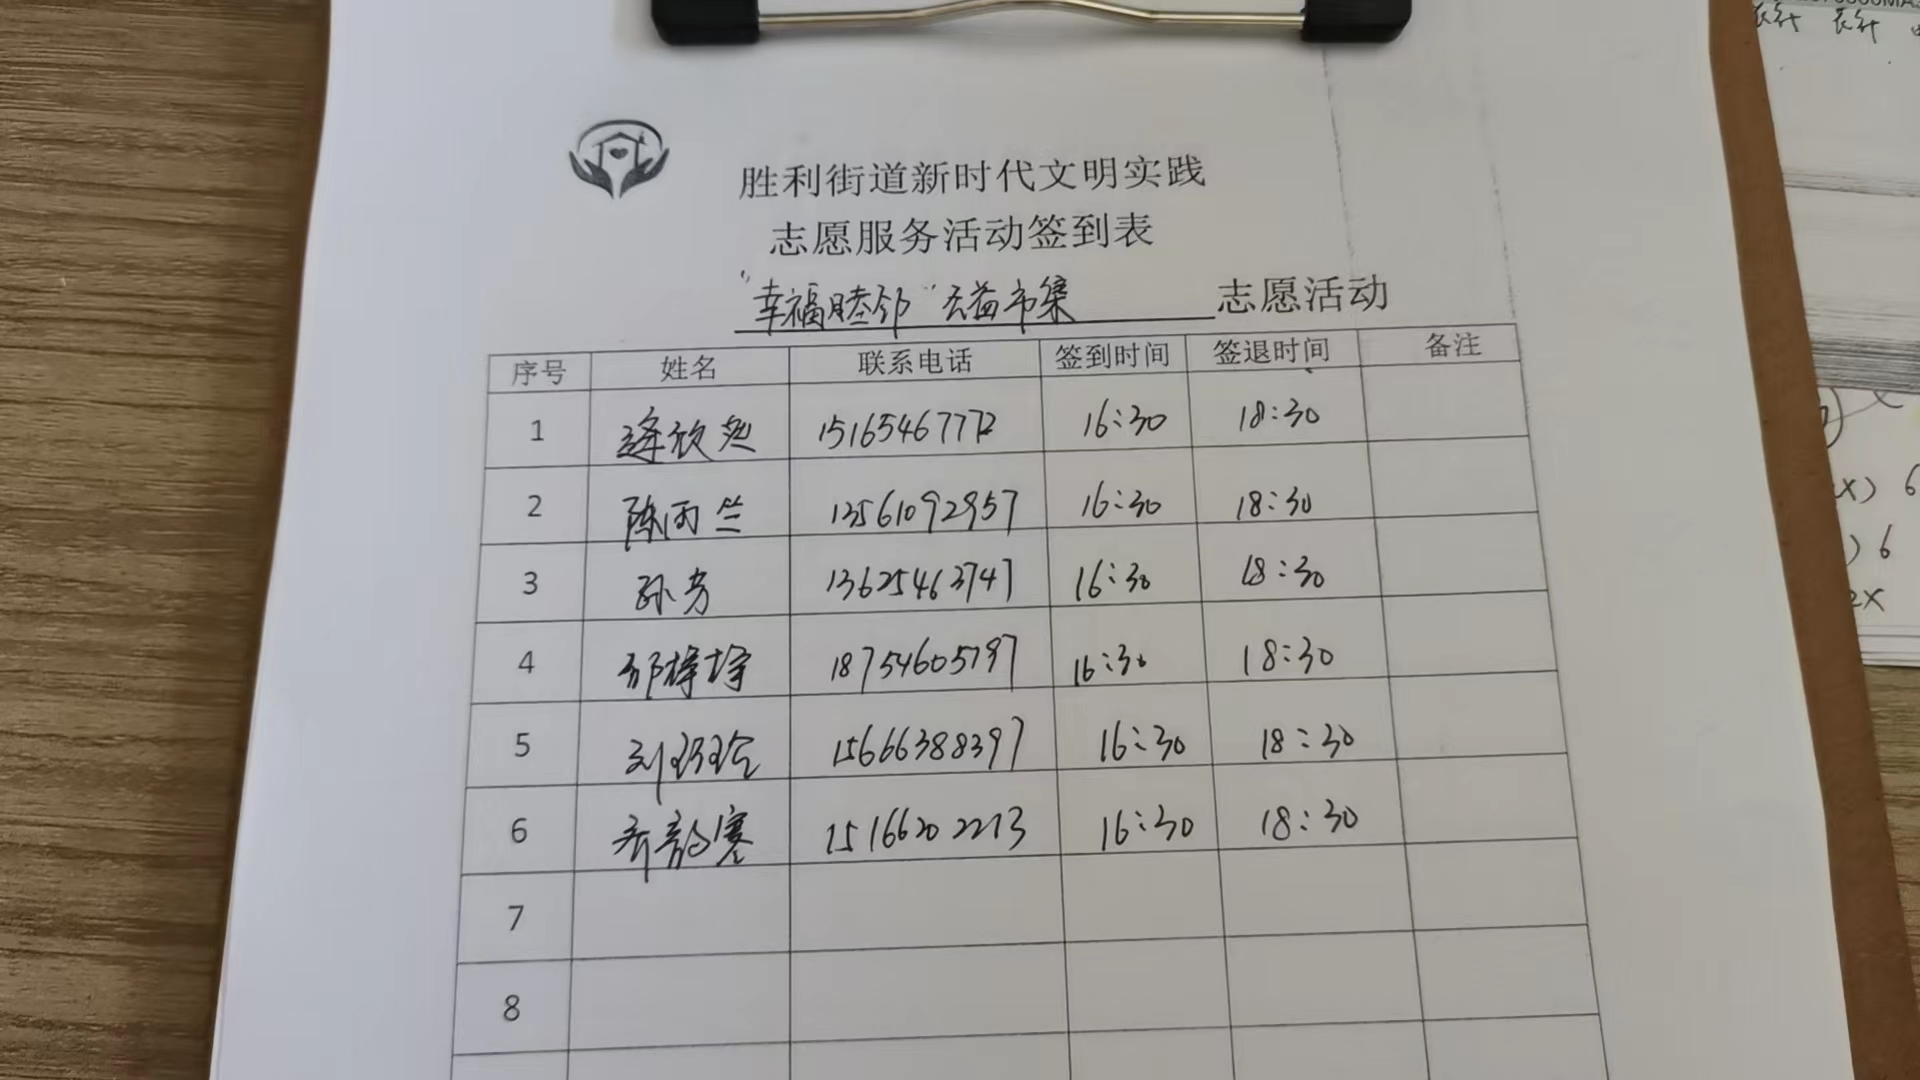 胜利街道新时代文明实践
志愿服务活动签到表
"幸福睦邻"公益市集 志愿活动
序号 姓名 联系电话 签到时间 签退时间 备注
1 逄欣然 15165467772 16:30 18:30
2 陈雨竺 13561092957 16:30 18:30
3 孙芳 13625463747 16:30 18:30
4 邹梓埩 18754605797 16:30 18:30
5 刘玲 15666388397 16:30 18:30
6 齐韵騫 15166202213 16:30 18:30
7
8